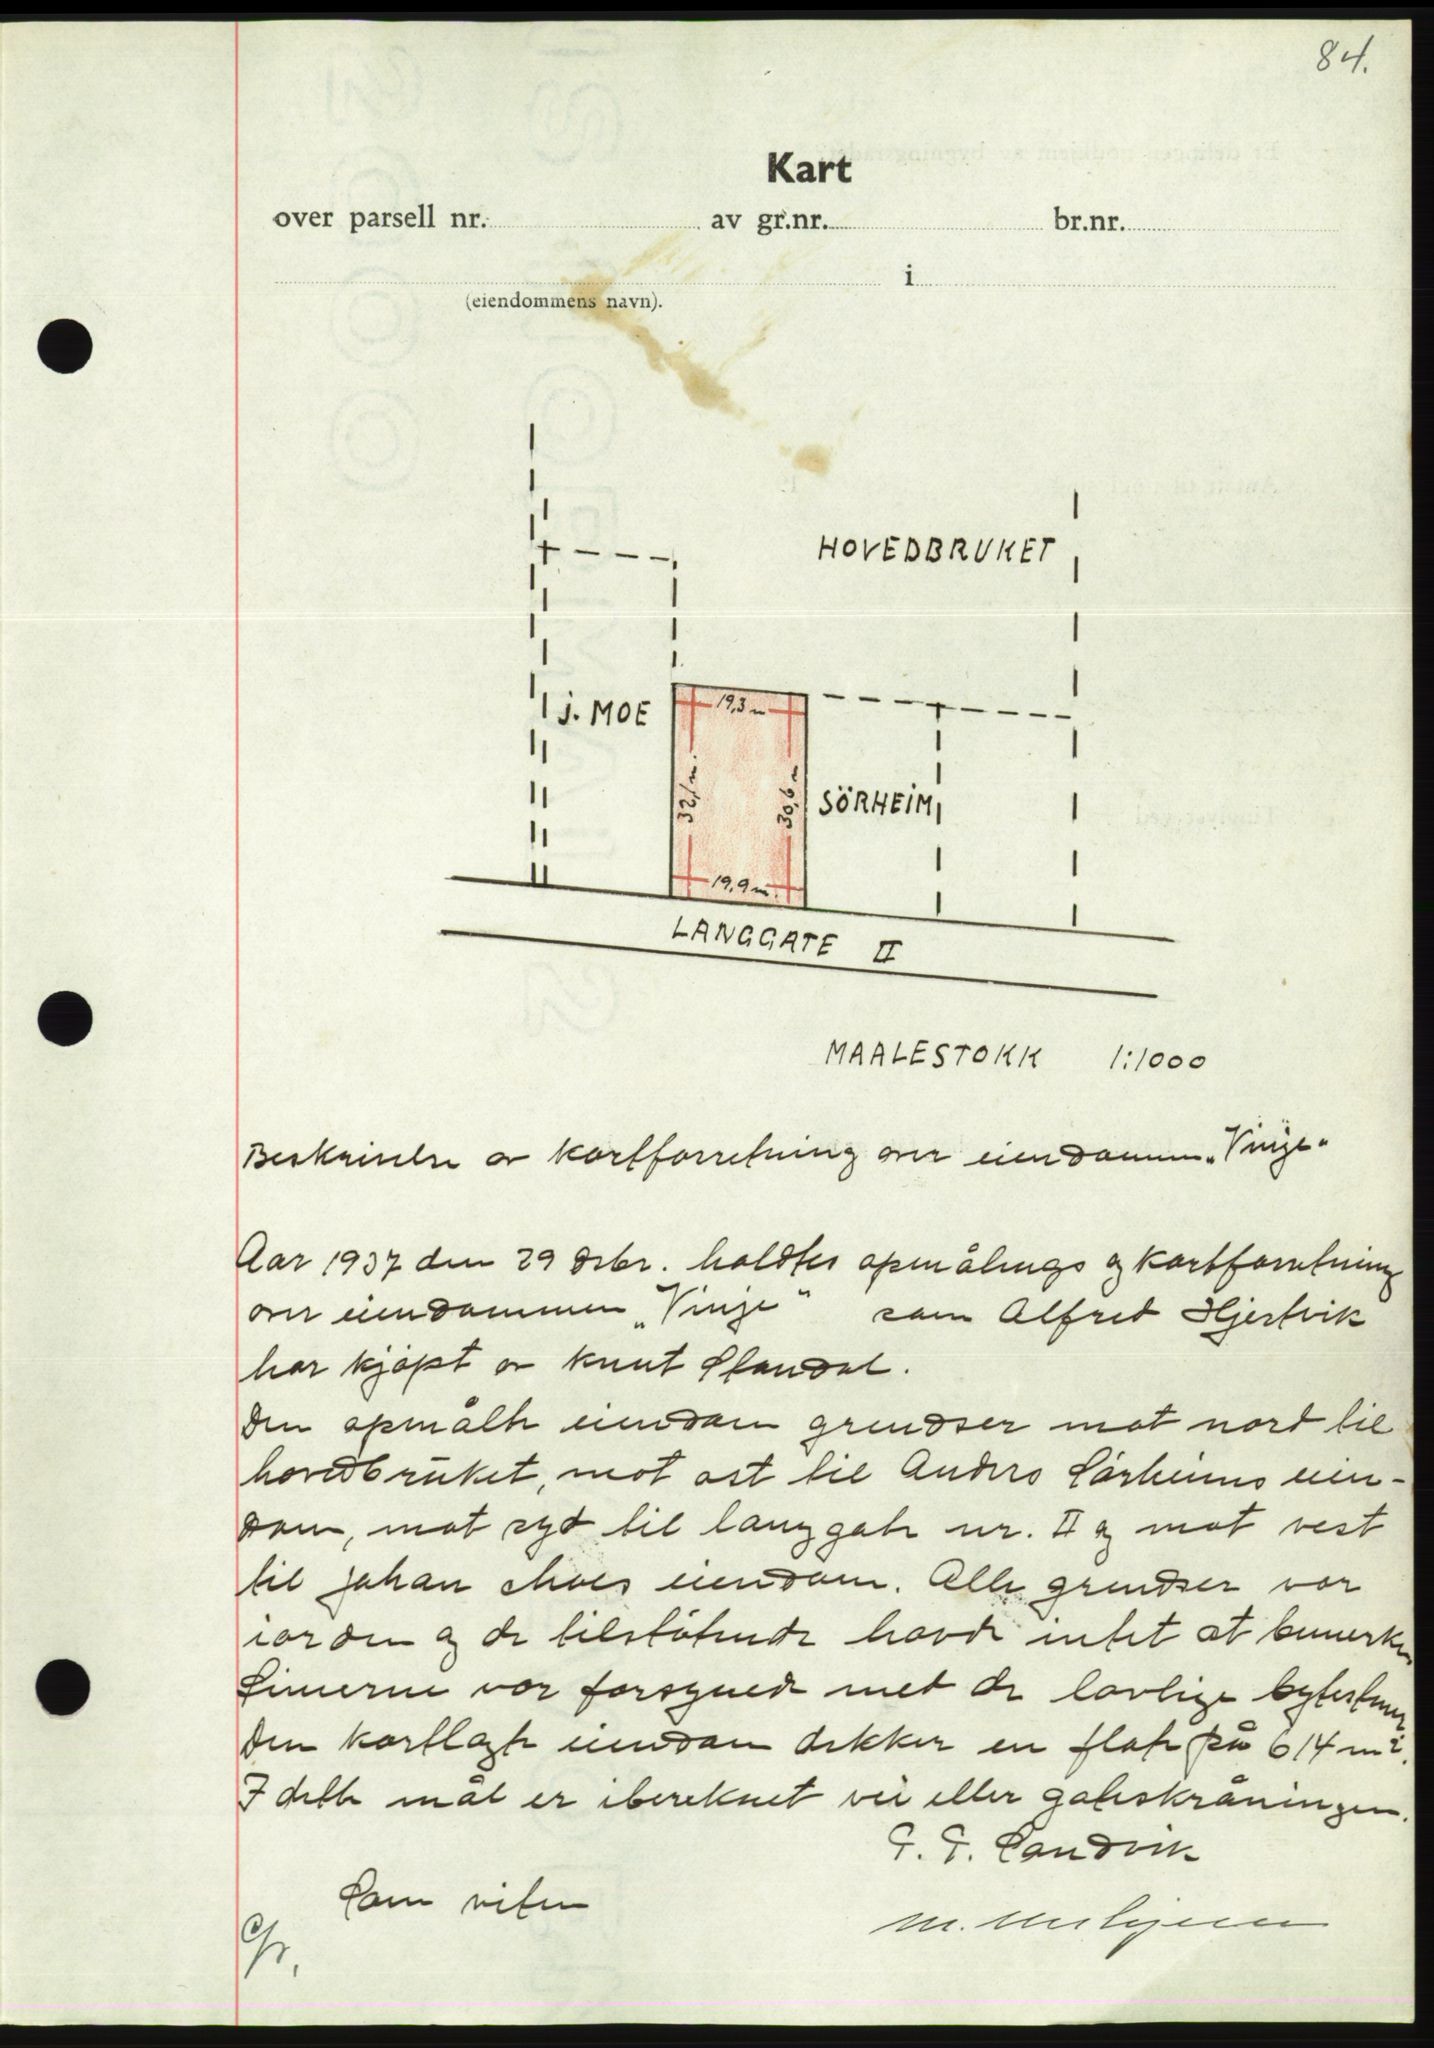 84.
Kart
over parsell nr. av gr.nr. br.nr.
i
(eiendommens navn).
HOVEDBRUKET
J. MOE
19,3 m
32,1 m.
30,6 m
SÖRHEIM
19,9 m.
LANGGATE II
MAALESTOKK 1:1000
Beskrivelse av kartforretning over eiendommen „Vinje"
Aar 1937 den 29 dsbr. holdtes opmålings og kartforretning
over eiendommen „Vinje" som Alfred Hjertvik
har kjøpt av Knut Standal.
Den opmålte eiendom grendser mot nord til
hovedbruket, mot øst til Anders Sørheims eien-
dom, mot syd til langgate nr. II og mot vest
til Johan Moes eiendom. Alle grendser var
iorden og de tilstøtende havde intet at bemerke
Linierne var forsynede med de lovlige bytestener
Den kartlagte eiendom dekker en flate på 614 m².
I dette mål er ibereknet vei eller gateskråningen.
Sandvik
Som viten
M.